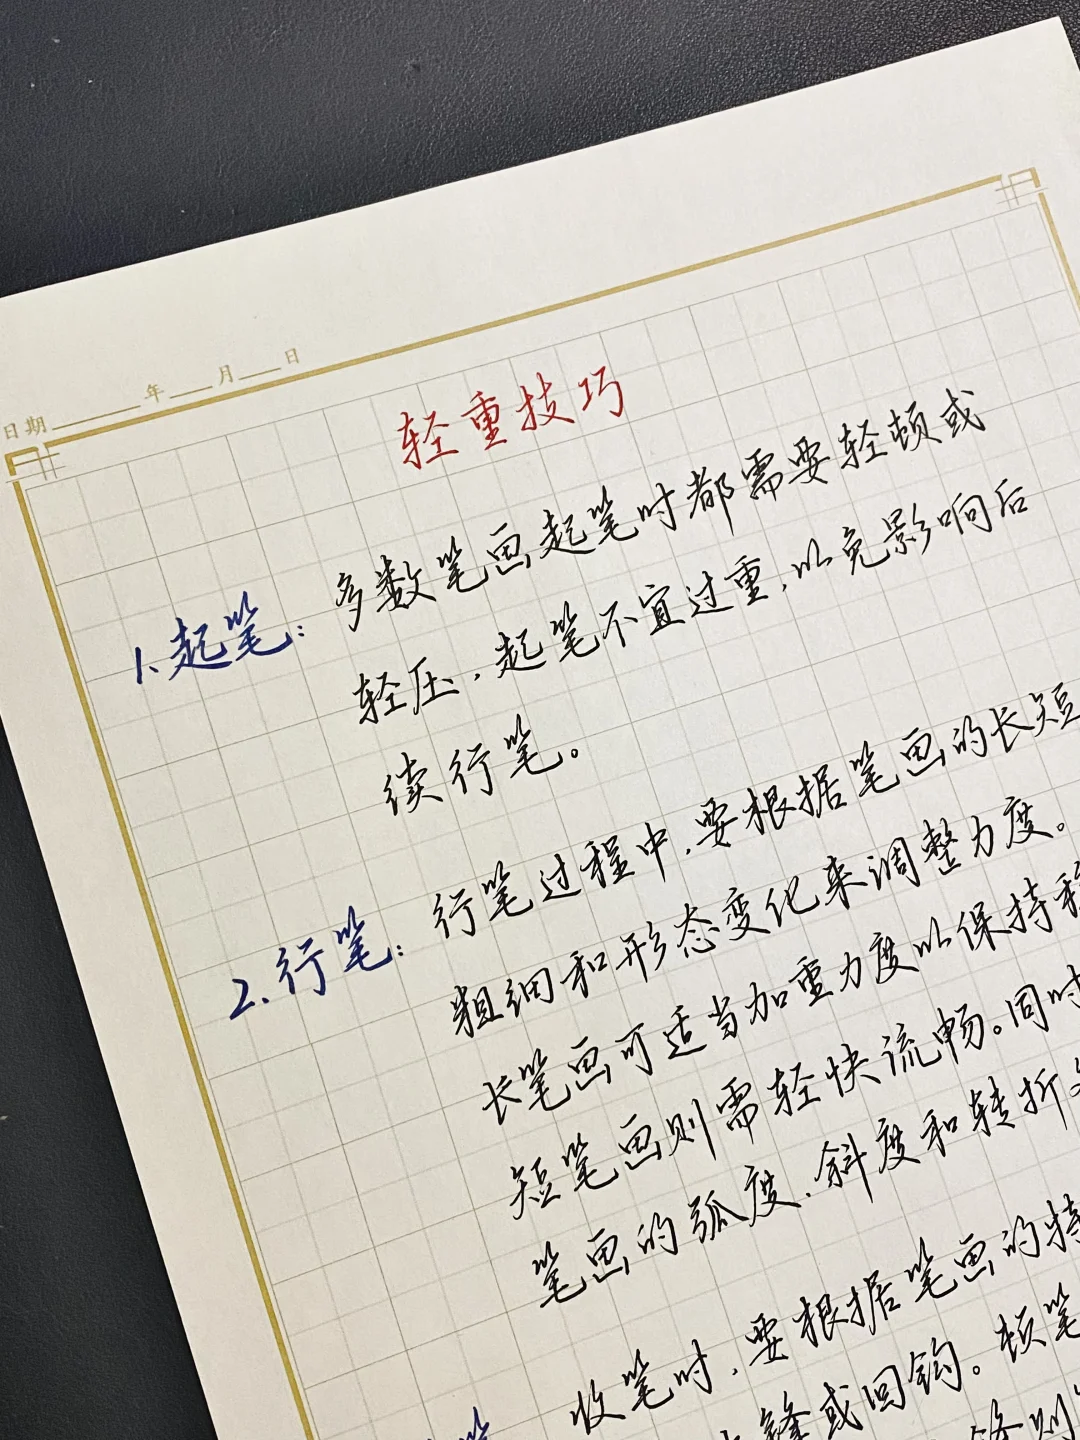 日期 年 月 日
轻重技巧
1、起笔：多数笔画起笔时都需要轻顿或
轻压，起笔不宜过重，以免影响后
续行笔。
2.行笔：行笔过程中，要根据笔画的长短
粗细和形态变化来调整力度。
长笔画可适当加重力度以保持稳
短笔画则需轻快流畅。同时
笔画的弧度、斜度和转折
收笔时，要根据笔画的特
锋或回钩。顿笔
则